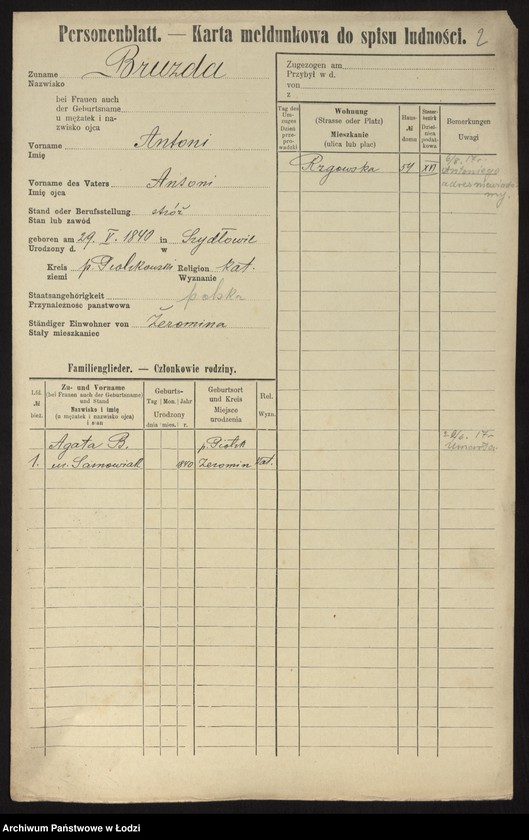 Personenblatt. — Karta meldunkowa do spisu ludności. 2
Zuname
Nazwisko
Bruzda
bei Frauen auch
der Geburtsname
u mężatek i na-
zwisko ojca
Vorname Antoni
Imię
Vorname des Vaters Antoni
Imię ojca
Stand oder Berufsstellung stróż
Stan lub zawód
geboren am 29. V. 1840 in Szydłowie
Urodzony d. w
Kreis p. Piotrkowski Religion kat.
ziemi Wyznanie
Staatsangehörigkeit polska
Przynależność państwowa
Ständiger Einwohner von Żeromina
Stały mieszkaniec
Zugezogen am
Przybył w d.
von
z
Tag des
Um-
zuges
Dzień
prze-
prowadzki
Wohnung
(Strasse oder Platz)
Mieszkanie
(ulica lub plac)
Haus-
№
domu
Steuer-
bezirk
Dziel-
nica
podat-
kowa
Bemerkungen
Uwagi
Rzgowska 54 XVI
Antoniego
adres niewiado-
my.
Familienglieder. — Członkowie rodziny.
Lfd.
№
bież.
Zu- und Vorname
(bei Frauen auch der Geburtsname)
und Stand
Nazwisko i imię
(u mężatek i nazwisko ojca)
i stan
Geburts-
Tag | Mon. | Jahr
Urodzony
dnia mies. r.
Geburtsort
und Kreis
Miejsce
urodzenia
Rel.
Wyzn.
Agata B. p. Piotrk
1. 1840 Żeromin kat.
17 r.
umarła.
Archiwum Państwowe w Łodzi